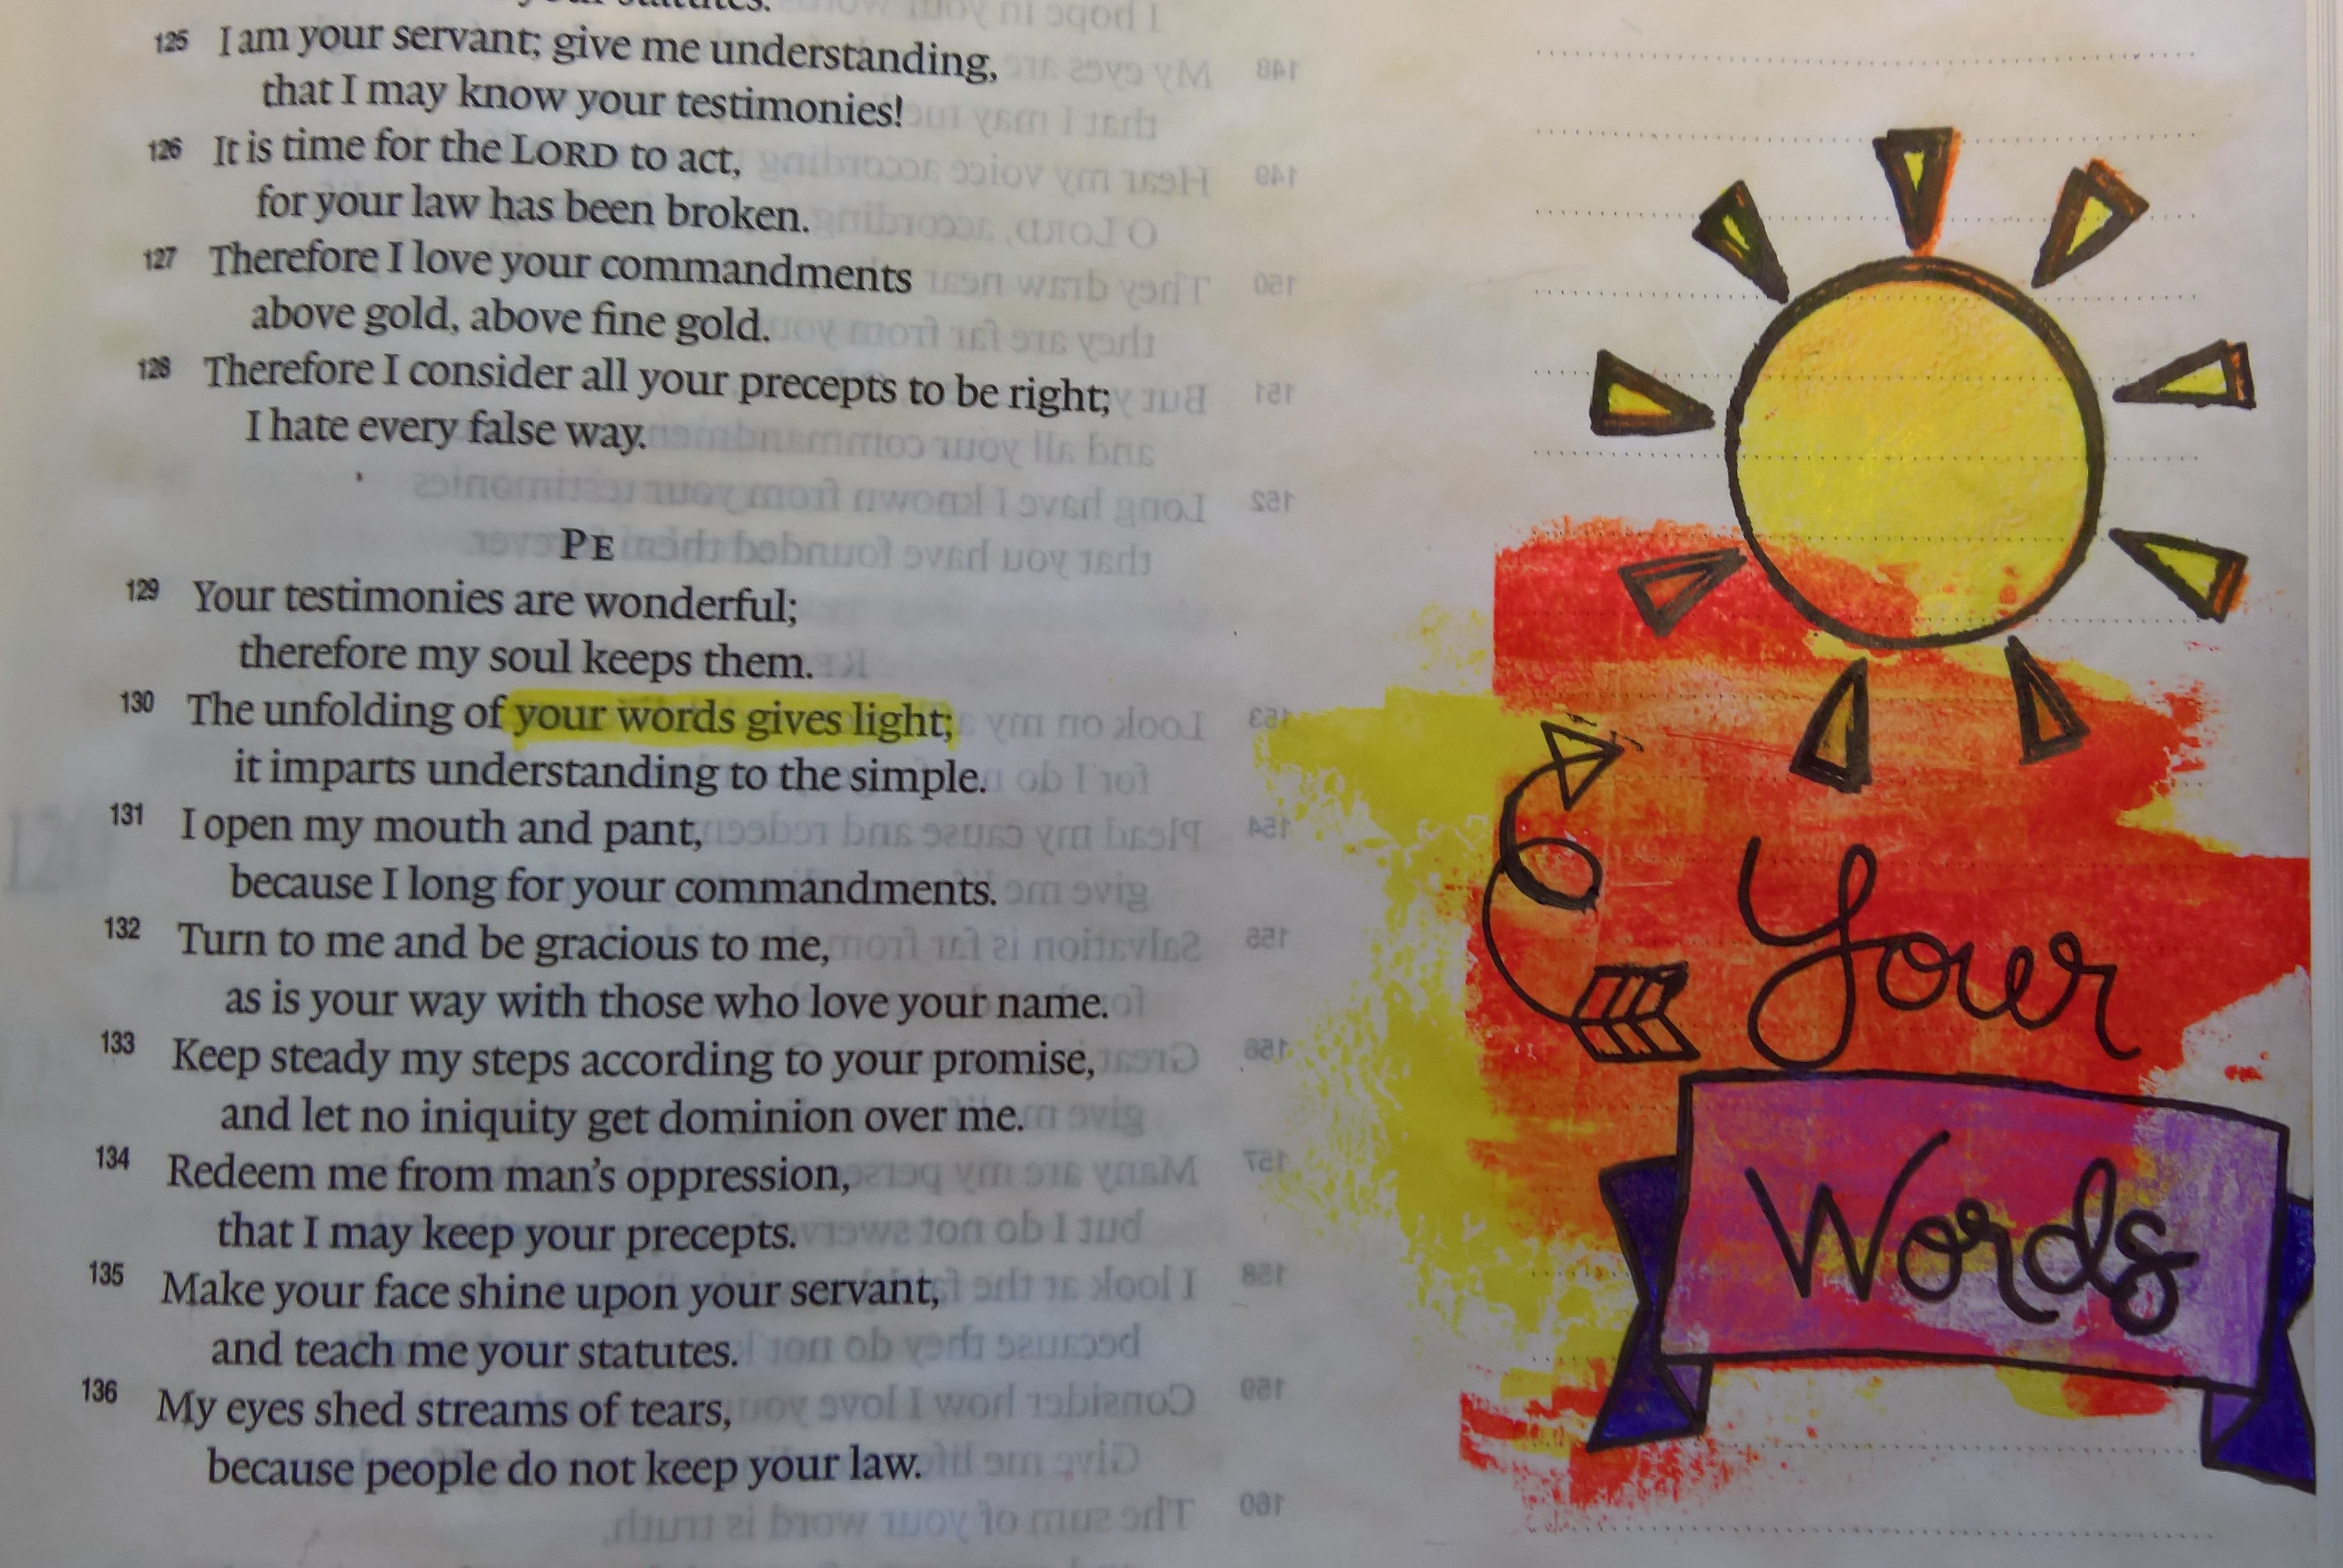 your statutes.
125 I am your servant; give me understanding,
that I may know your testimonies!
126 It is time for the LORD to act,
for your law has been broken.
127 Therefore I love your commandments
above gold, above fine gold.
128 Therefore I consider all your precepts to be right;
I hate every false way.
PE
129 Your testimonies are wonderful;
therefore my soul keeps them.
130 The unfolding of your words gives light;
it imparts understanding to the simple.
131 I open my mouth and pant,
because I long for your commandments.
132 Turn to me and be gracious to me,
as is your way with those who love your name.
133 Keep steady my steps according to your promise,
and let no iniquity get dominion over me.
134 Redeem me from man's oppression,
that I may keep your precepts.
135 Make your face shine upon your servant,
and teach me your statutes.
136 My eyes shed streams of tears,
because people do not keep your law.
Your
Words